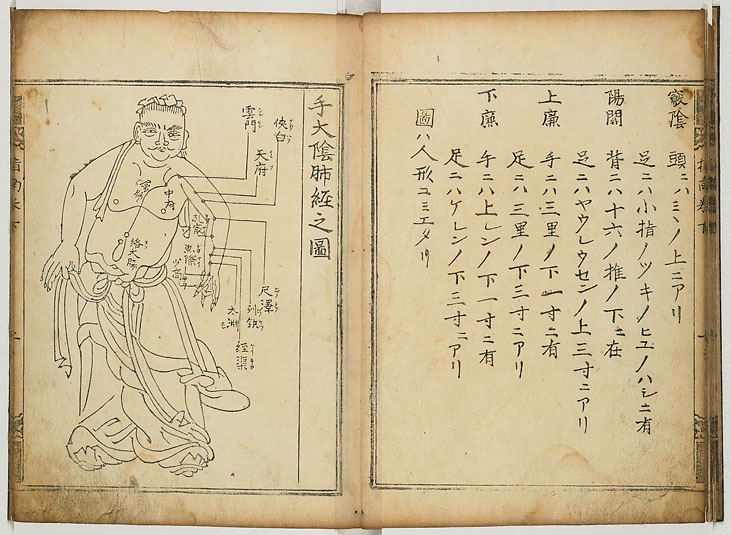 竅陰　頭ニハミヽノ上ニアリ
足ニハ小指ノツキノヒユノハシニ有
陽關　背ニハ十六ノ推ノ下ニ在
足ニハヤウレウセンノ上三寸ニアリ
上廉　手ニハ三里ノ下一寸ニ有
足ニハ三里ノ下三寸ニアリ
下廉　手ニハ上レンノ下一寸ニ有
足ニハケレンノ下三寸ニアリ
圖ハ人形ニミエタリ
手大陰肺經之圖
侠白
天府
雲門
中府
孔最
魚際
少商
絡大腸
尺澤
列缺
經渠
太淵